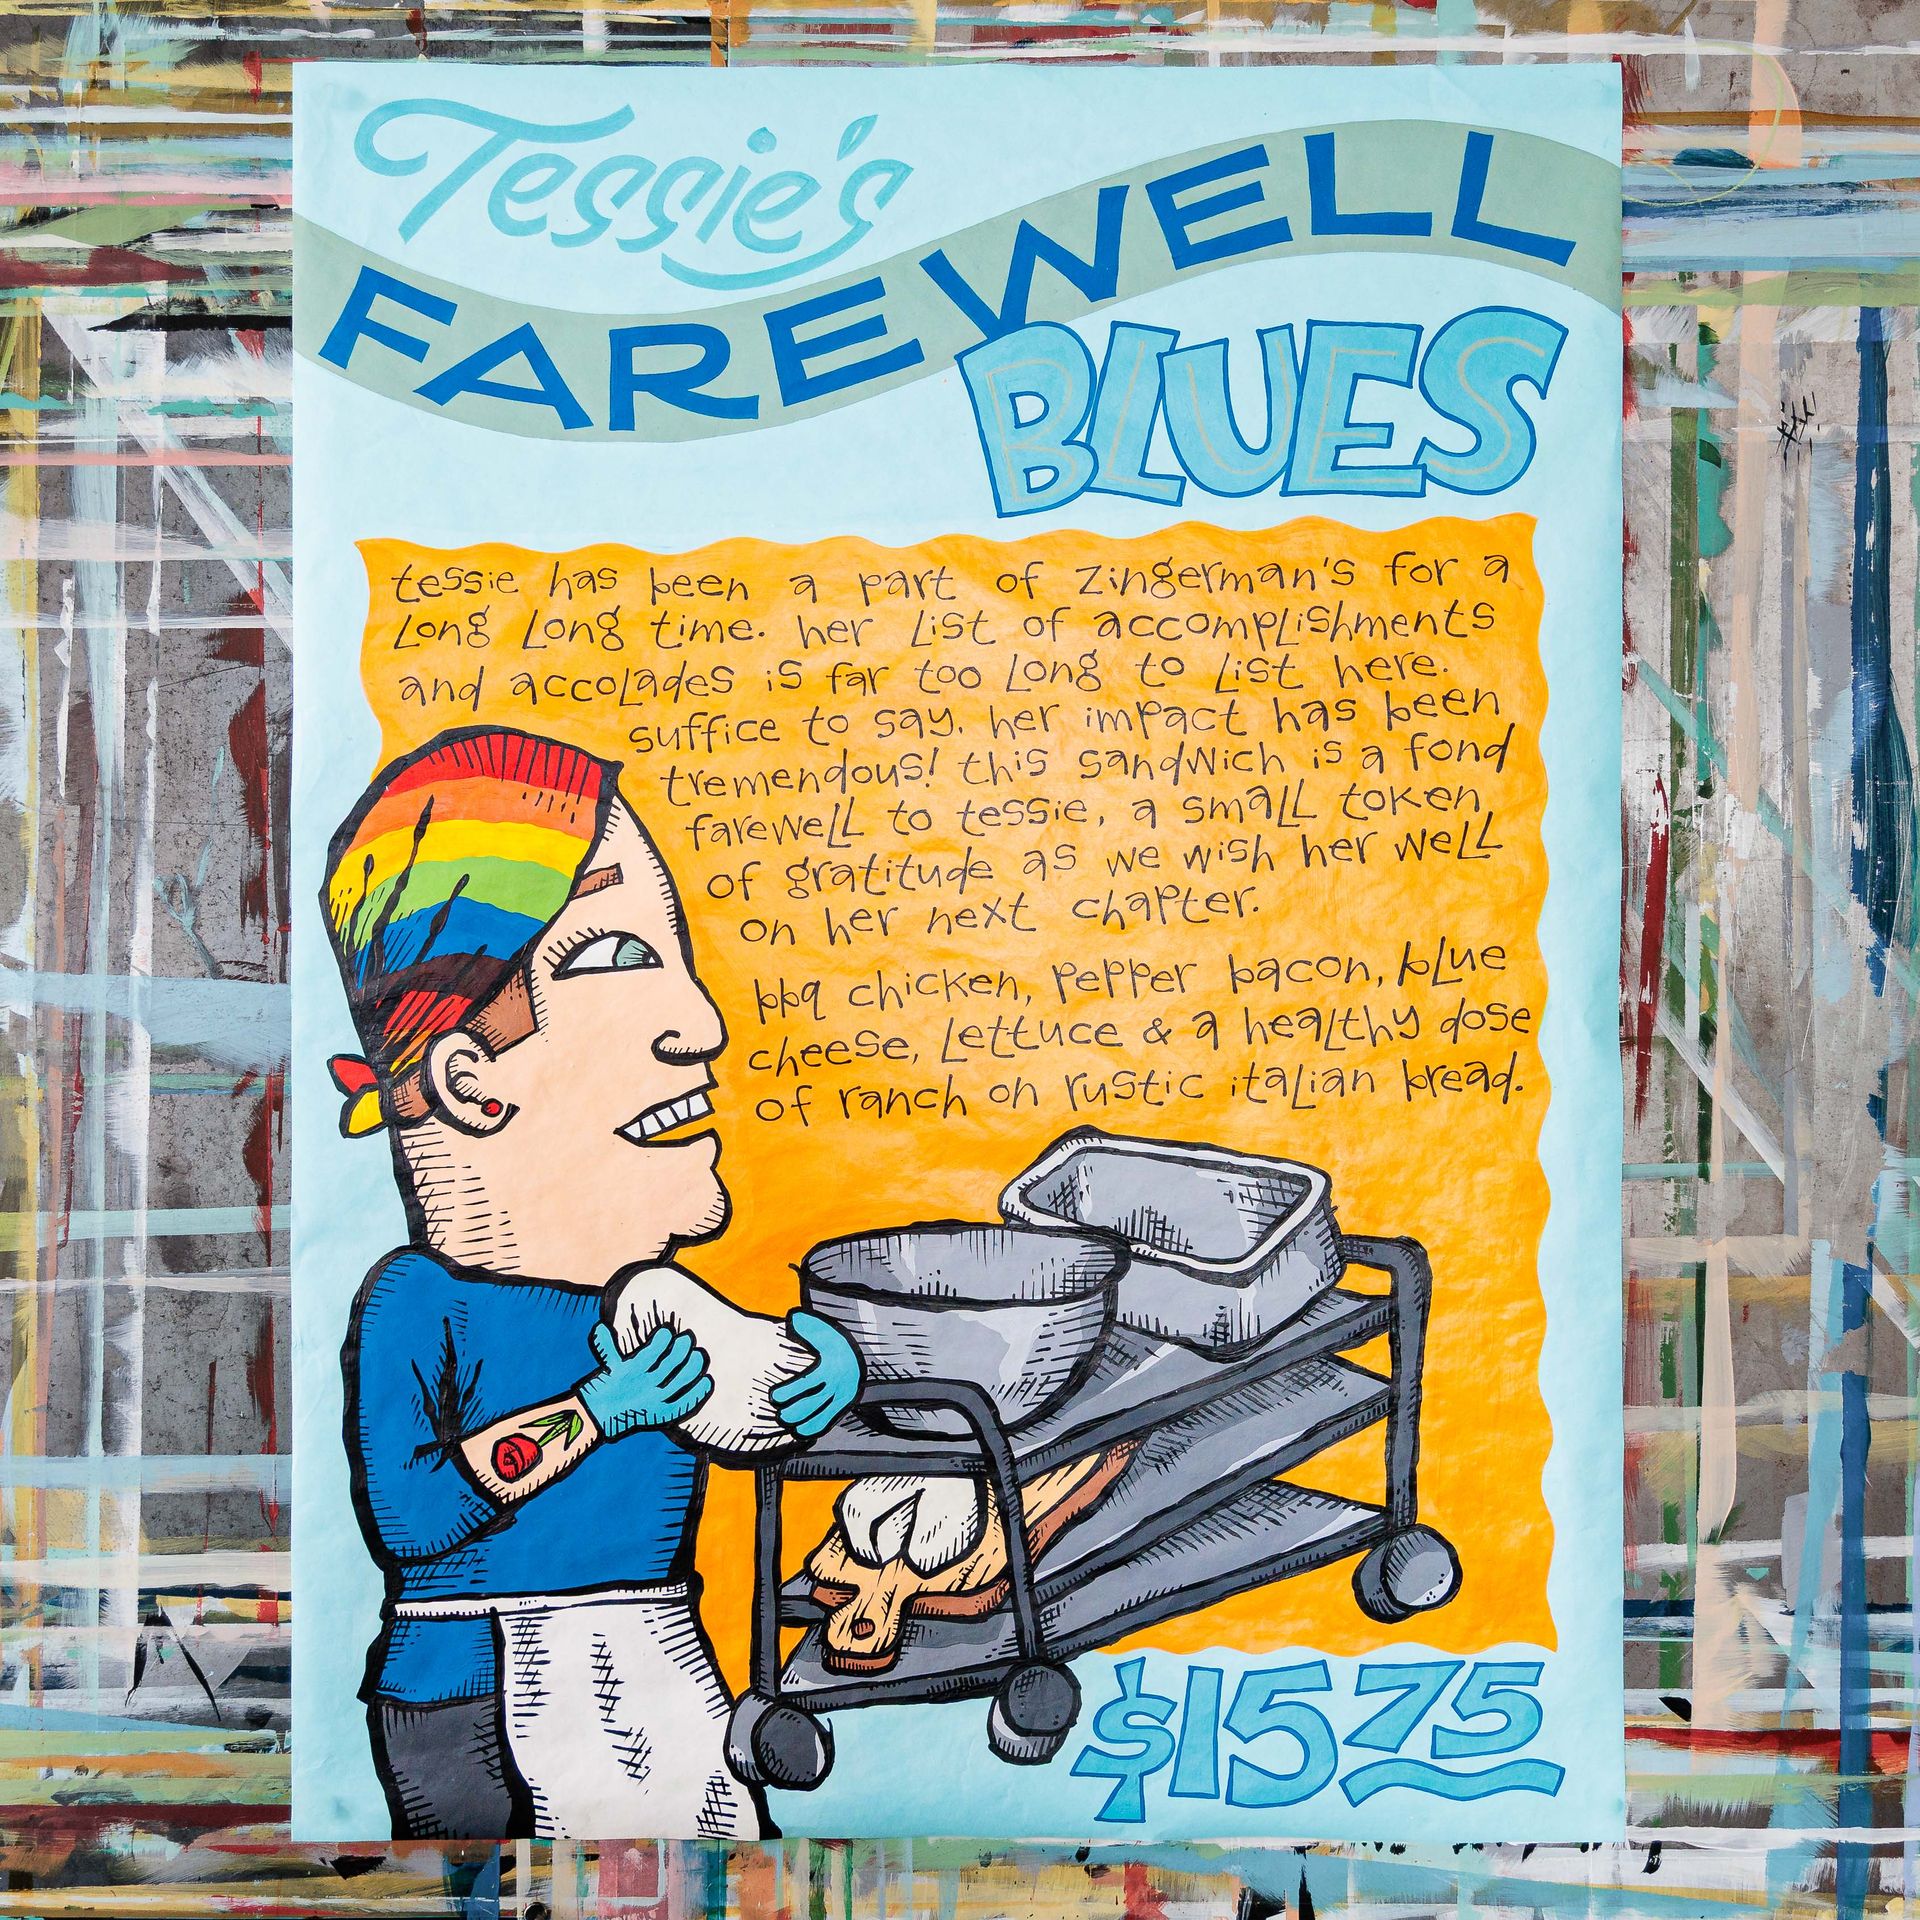 Tessie's
FAREWELL
BLUES
tessie has been a part of zingerman's for a
Long Long time. her List of accomplishments
and accolades is far too Long to List here.
suffice to say, her impact has been
tremendous! this sandwich is a fond
farewell to tessie, a small token
of gratitude as we wish her well
on her next chapter.
bbq chicken, pepper bacon, blue
cheese, Lettuce & a healthy dose
of ranch on rustic italian bread.
$15 75